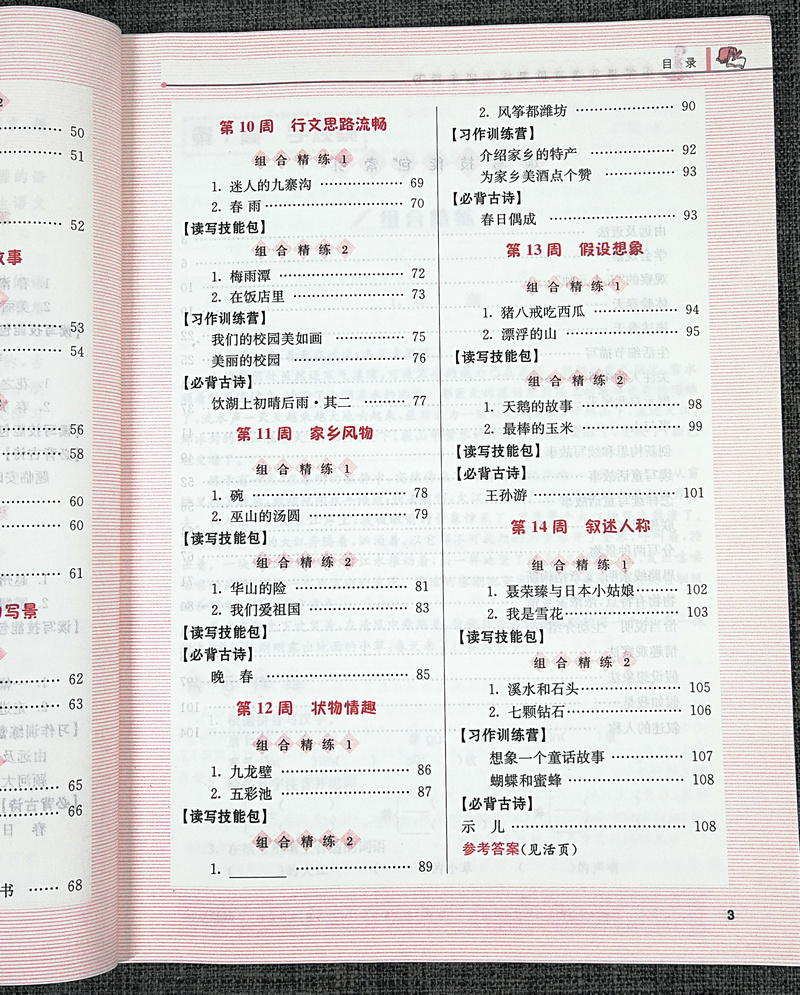 50
51
52
故事
53
54
56
58
60
60
61
写景
62
63
65
66
书 …… 68
目 录
第 10 周 行文思路流畅
组 合 精 练 1
1. 迷人的九寨沟 ……………… 69
2. 春 雨 ……………… 70
【读写技能包】
组 合 精 练 2
1. 梅雨潭 ……………… 72
2. 在饭店里 ……………… 73
【习作训练营】
我们的校园美如画 ……………… 75
美丽的校园 ……………… 76
【必背古诗】
饮湖上初晴后雨·其二 ……………… 77
第 11 周 家乡风物
组 合 精 练 1
1. 碗 ……………… 78
2. 巫山的汤圆 ……………… 79
【读写技能包】
组 合 精 练 2
1. 华山的险 ……………… 81
2. 我们爱祖国 ……………… 83
【读写技能包】
【必背古诗】
晚 春 ……………… 85
第 12 周 状物情趣
组 合 精 练 1
1. 九龙壁 ……………… 86
2. 五彩池 ……………… 87
【读写技能包】
组 合 精 练 2
1. ______ ……………… 89
2. 风筝都潍坊 ……………… 90
【习作训练营】
介绍家乡的特产 ……………… 92
为家乡美酒点个赞 ……………… 93
【必背古诗】
春日偶成 ……………… 93
第 13 周 假设想象
组 合 精 练 1
1. 猪八戒吃西瓜 ……………… 94
2. 漂浮的山 ……………… 95
【读写技能包】
组 合 精 练 2
1. 天鹅的故事 ……………… 98
2. 最棒的玉米 ……………… 99
【读写技能包】
【必背古诗】
王孙游 ……………… 101
第 14 周 叙述人称
组 合 精 练 1
1. 聂荣臻与日本小姑娘 ……………… 102
2. 我是雪花 ……………… 103
【读写技能包】
组 合 精 练 2
1. 溪水和石头 ……………… 105
2. 七颗钻石 ……………… 106
【习作训练营】
想象一个童话故事 ……………… 107
蝴蝶和蜜蜂 ……………… 108
【必背古诗】
示 儿 ……………… 108
参考答案(见活页)
3